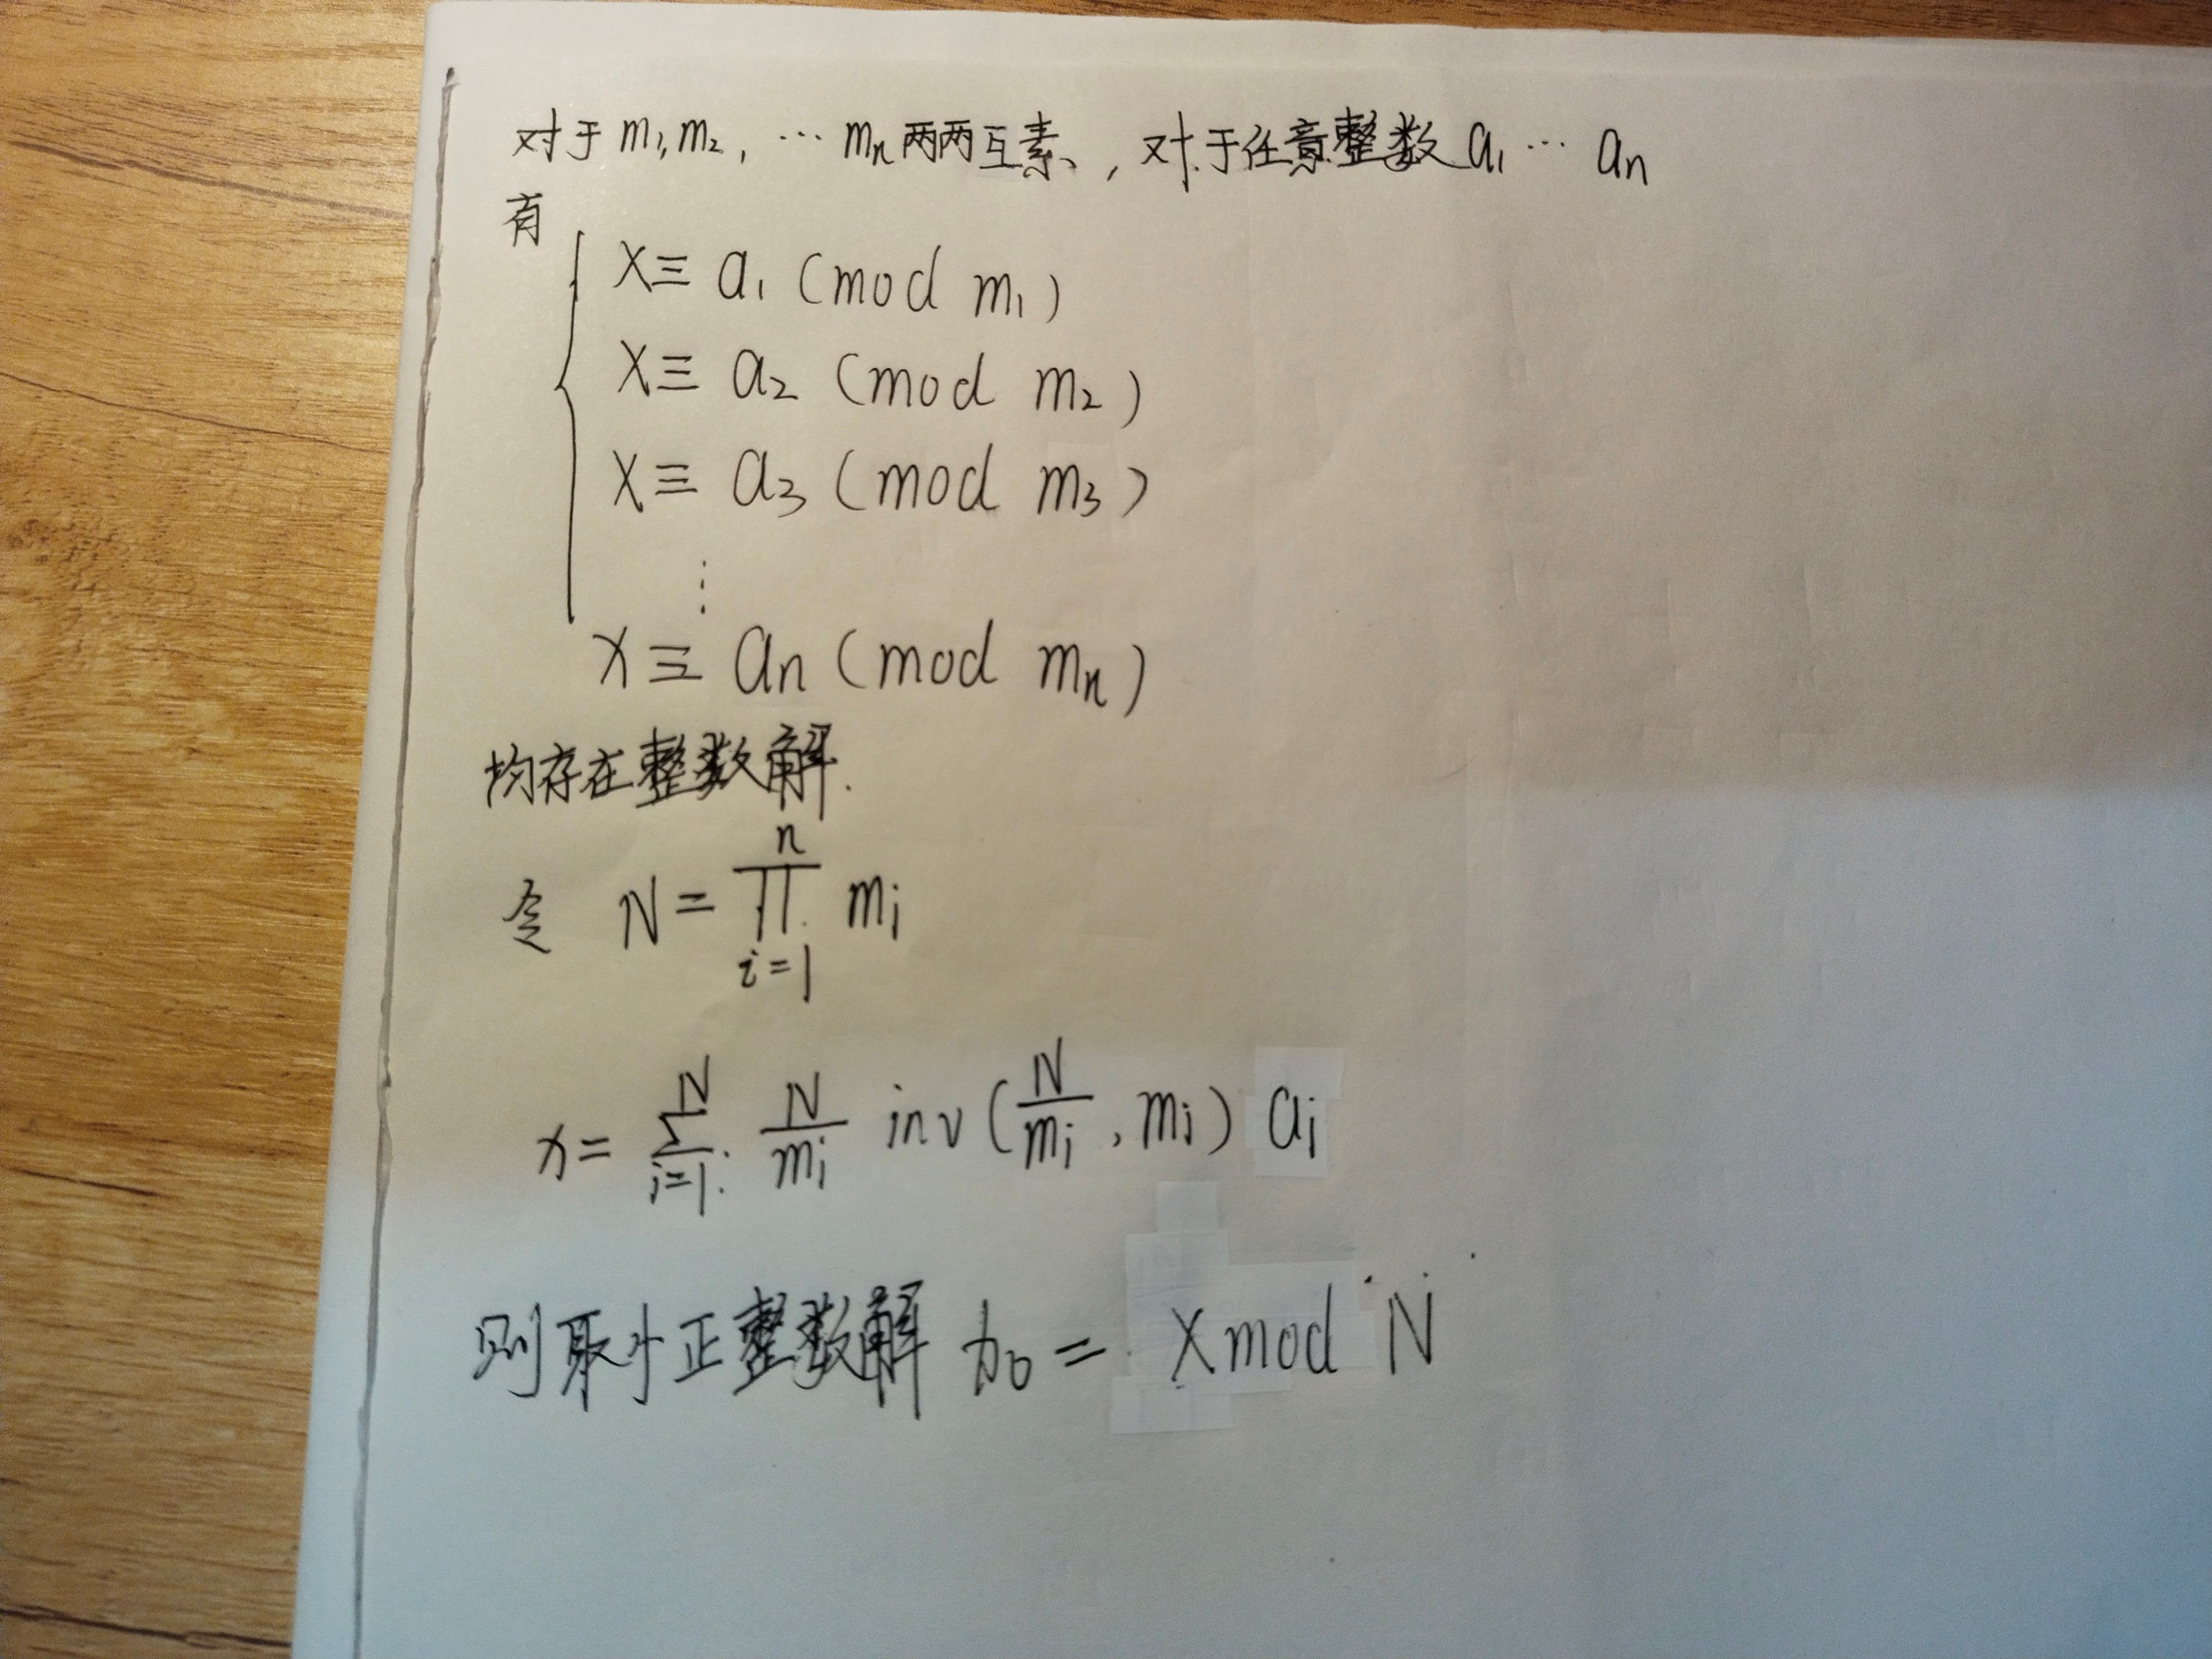 对于 m₁, m₂, ⋯ mₙ 两两互素, 对于任意整数 a₁ ⋯ aₙ
有
x ≡ a₁ (mod m₁)
x ≡ a₂ (mod m₂)
x ≡ a₃ (mod m₃)
⋮
x ≡ aₙ (mod mₙ)
均存在整数解.
令 N = ∏_{i=1}^{n} mᵢ
x = ∑_{i=1}^{N} N/mᵢ inv(N/mᵢ, mᵢ) aᵢ
则取小正整数解 x₀ = x mod N